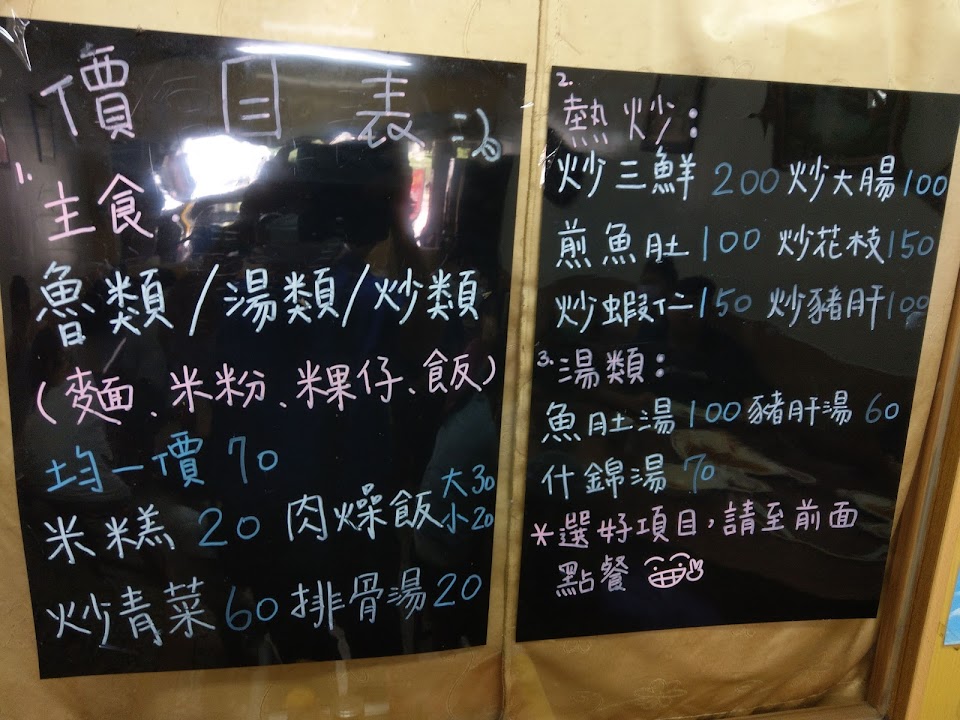 價目表
1. 主食:
魯類/湯類/炒類
(麵、米粉、粿仔、飯)
均一價 70
米糕 20 肉燥飯 大30 小20
炒青菜 60 排骨湯 20
2. 熱炒:
炒三鮮 200 炒大腸 100
煎魚肚 100 炒花枝 150
炒蝦仁 150 炒豬肝 100
3. 湯類:
魚肚湯 100 豬肝湯 60
什錦湯 70
*選好項目,請至前面
點餐